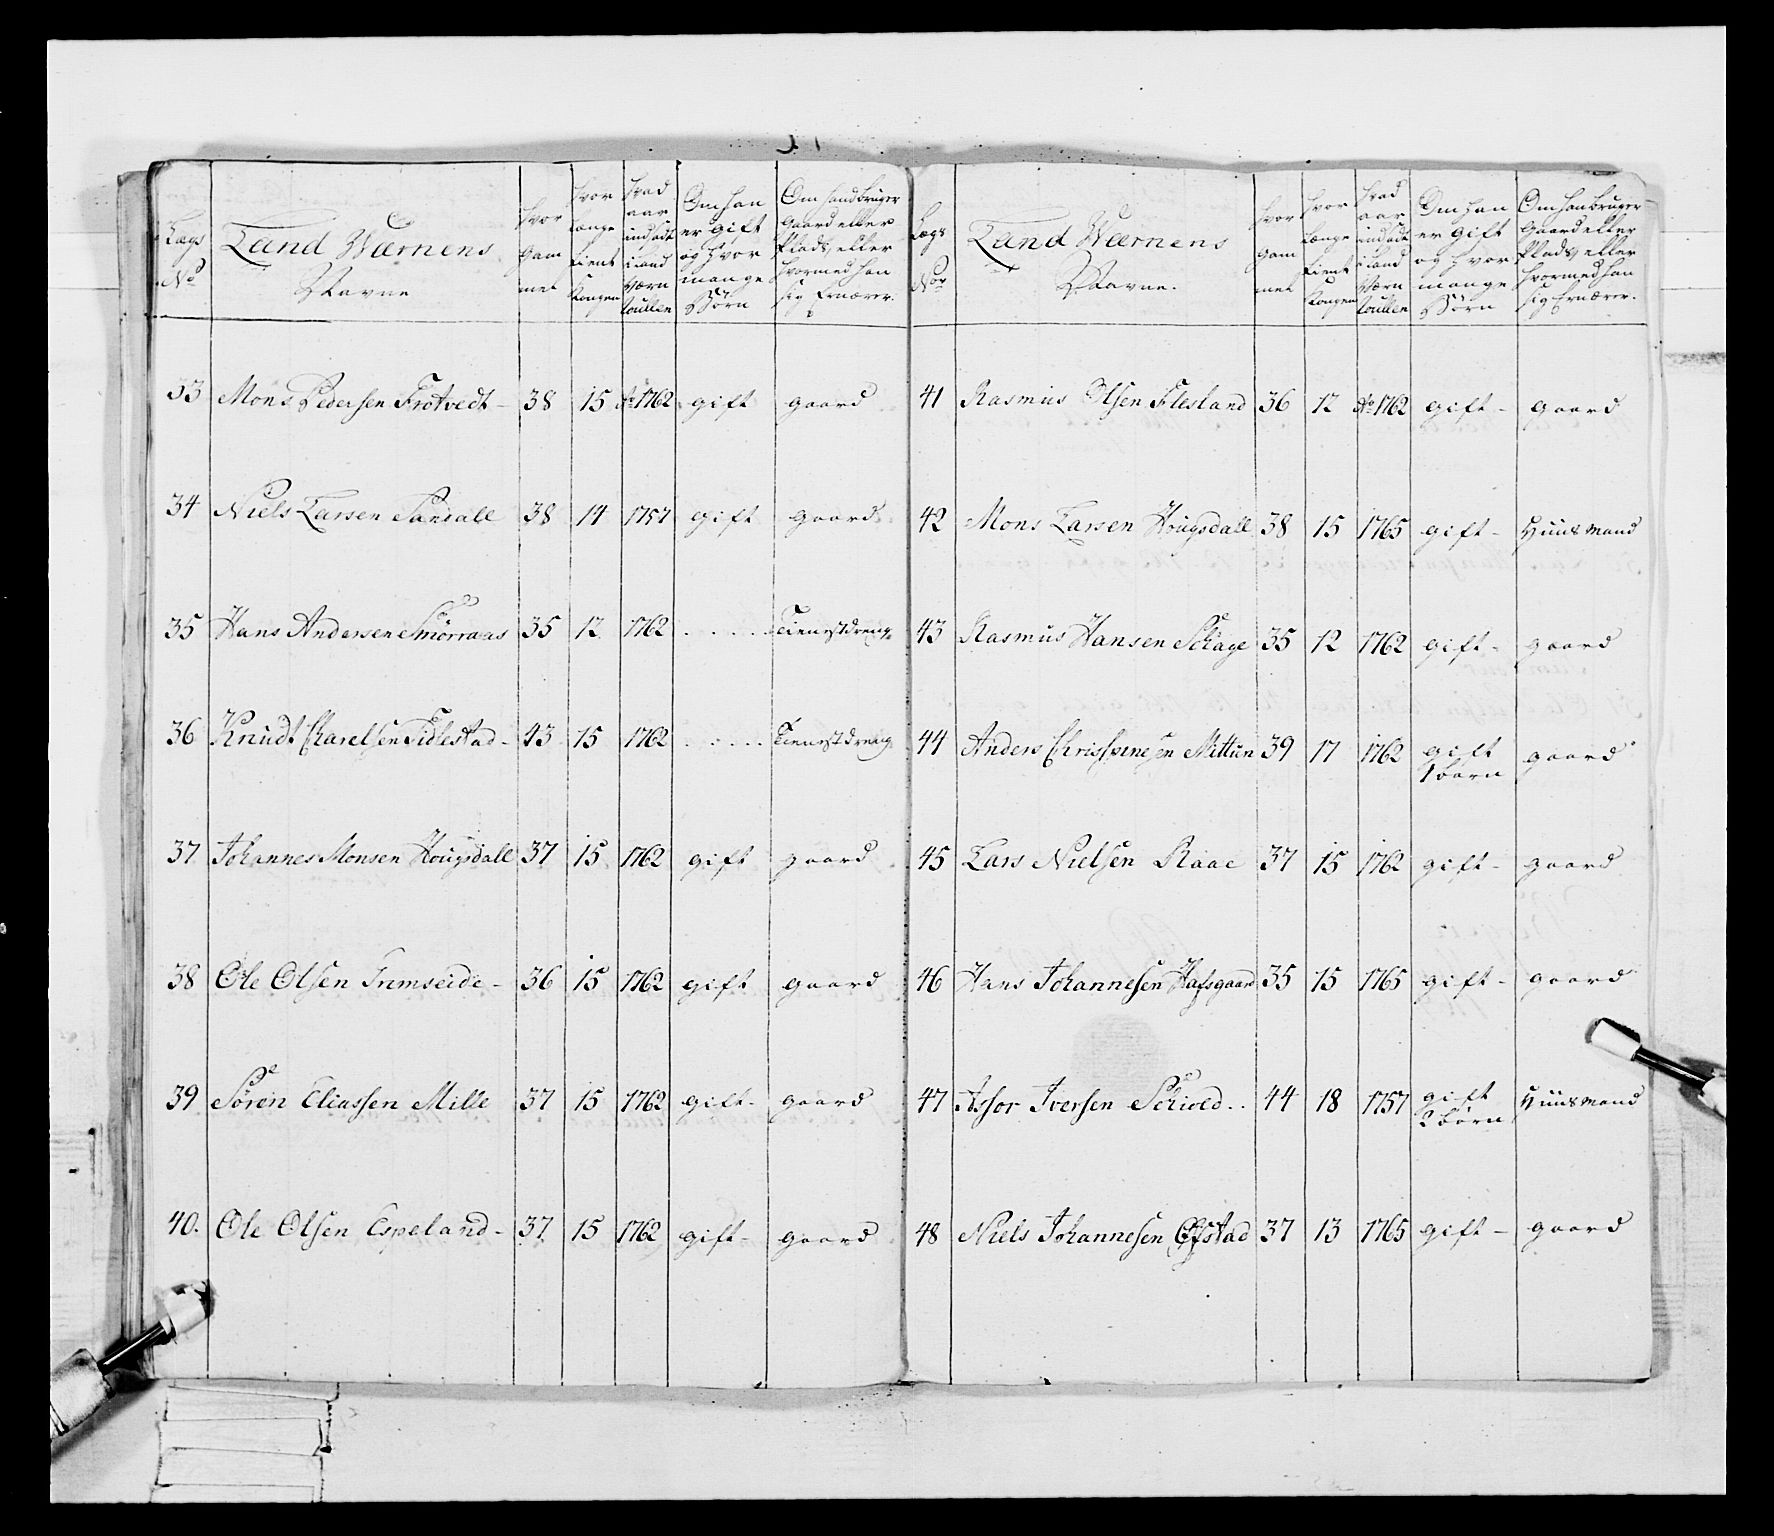 Lægs No | Land Wærnens Navne | Hvor gammel | Hvor længe tient Kongen | Hvad aar indsadt i Land Værn Roullen | Om han er gift og hvor mange Børn | Om hand bruger Gaard eller Plads, eller hvormed han sig Ernærer.
33 Mons Pedersen Trotvedt - 38 15 Ao 1762 gift gaard
34 Niels Larsen Sandall 38 14 1757 gift gaard
35 Hans Andersen Smörraas 35 12 1762 . . . . . Tienestdreng
36 Knudt Charelsen Tidlestad - 43 15 1762 . . . . . Tienestdreng
37 Johannes Monsen Hougsdall 37 15 1762 gift gaard
38 Ole Olsen Trimseide - 36 15 1762 gift gaard
39 Sören Eliassen Milde 37 15 1762 gift - gaard
40. Ole Olsen Espeland - 37 15 1762 gift - gaard
Lægs Nor | Land Wærnens Navne. | Hvor gammel | Hvor længe tient Kongen | Hvad aar indsadt i Land Værn Roullen | Om han er gift og hvor mange Börn | Om Han bruger Gaard eller Plads, eller hvormed han sig Ernærer.
41 Rasmus Olsen Flesland 36 12 Ao 1762 gift - gaard
42 Mons Larsen Hougsdall 38 15 1765 gift - Huusmand
43 Rasmus Hansen Schage 35 12 1762 gift - gaard
44 Anders Mittun 39 17 1762 gift 1 barn gaard
45 Lars Nielsen Raae 37 15 1762 gift - gaard
46 Hans Johannesen Hafsgaard 35 15 1765 gift - gaard
47 Assor Iversen Schield . . 44 18 1757 gift 2 börn Huusmand
48 Niels Johannesen Øfstad 37 13 1765 gift - gaard